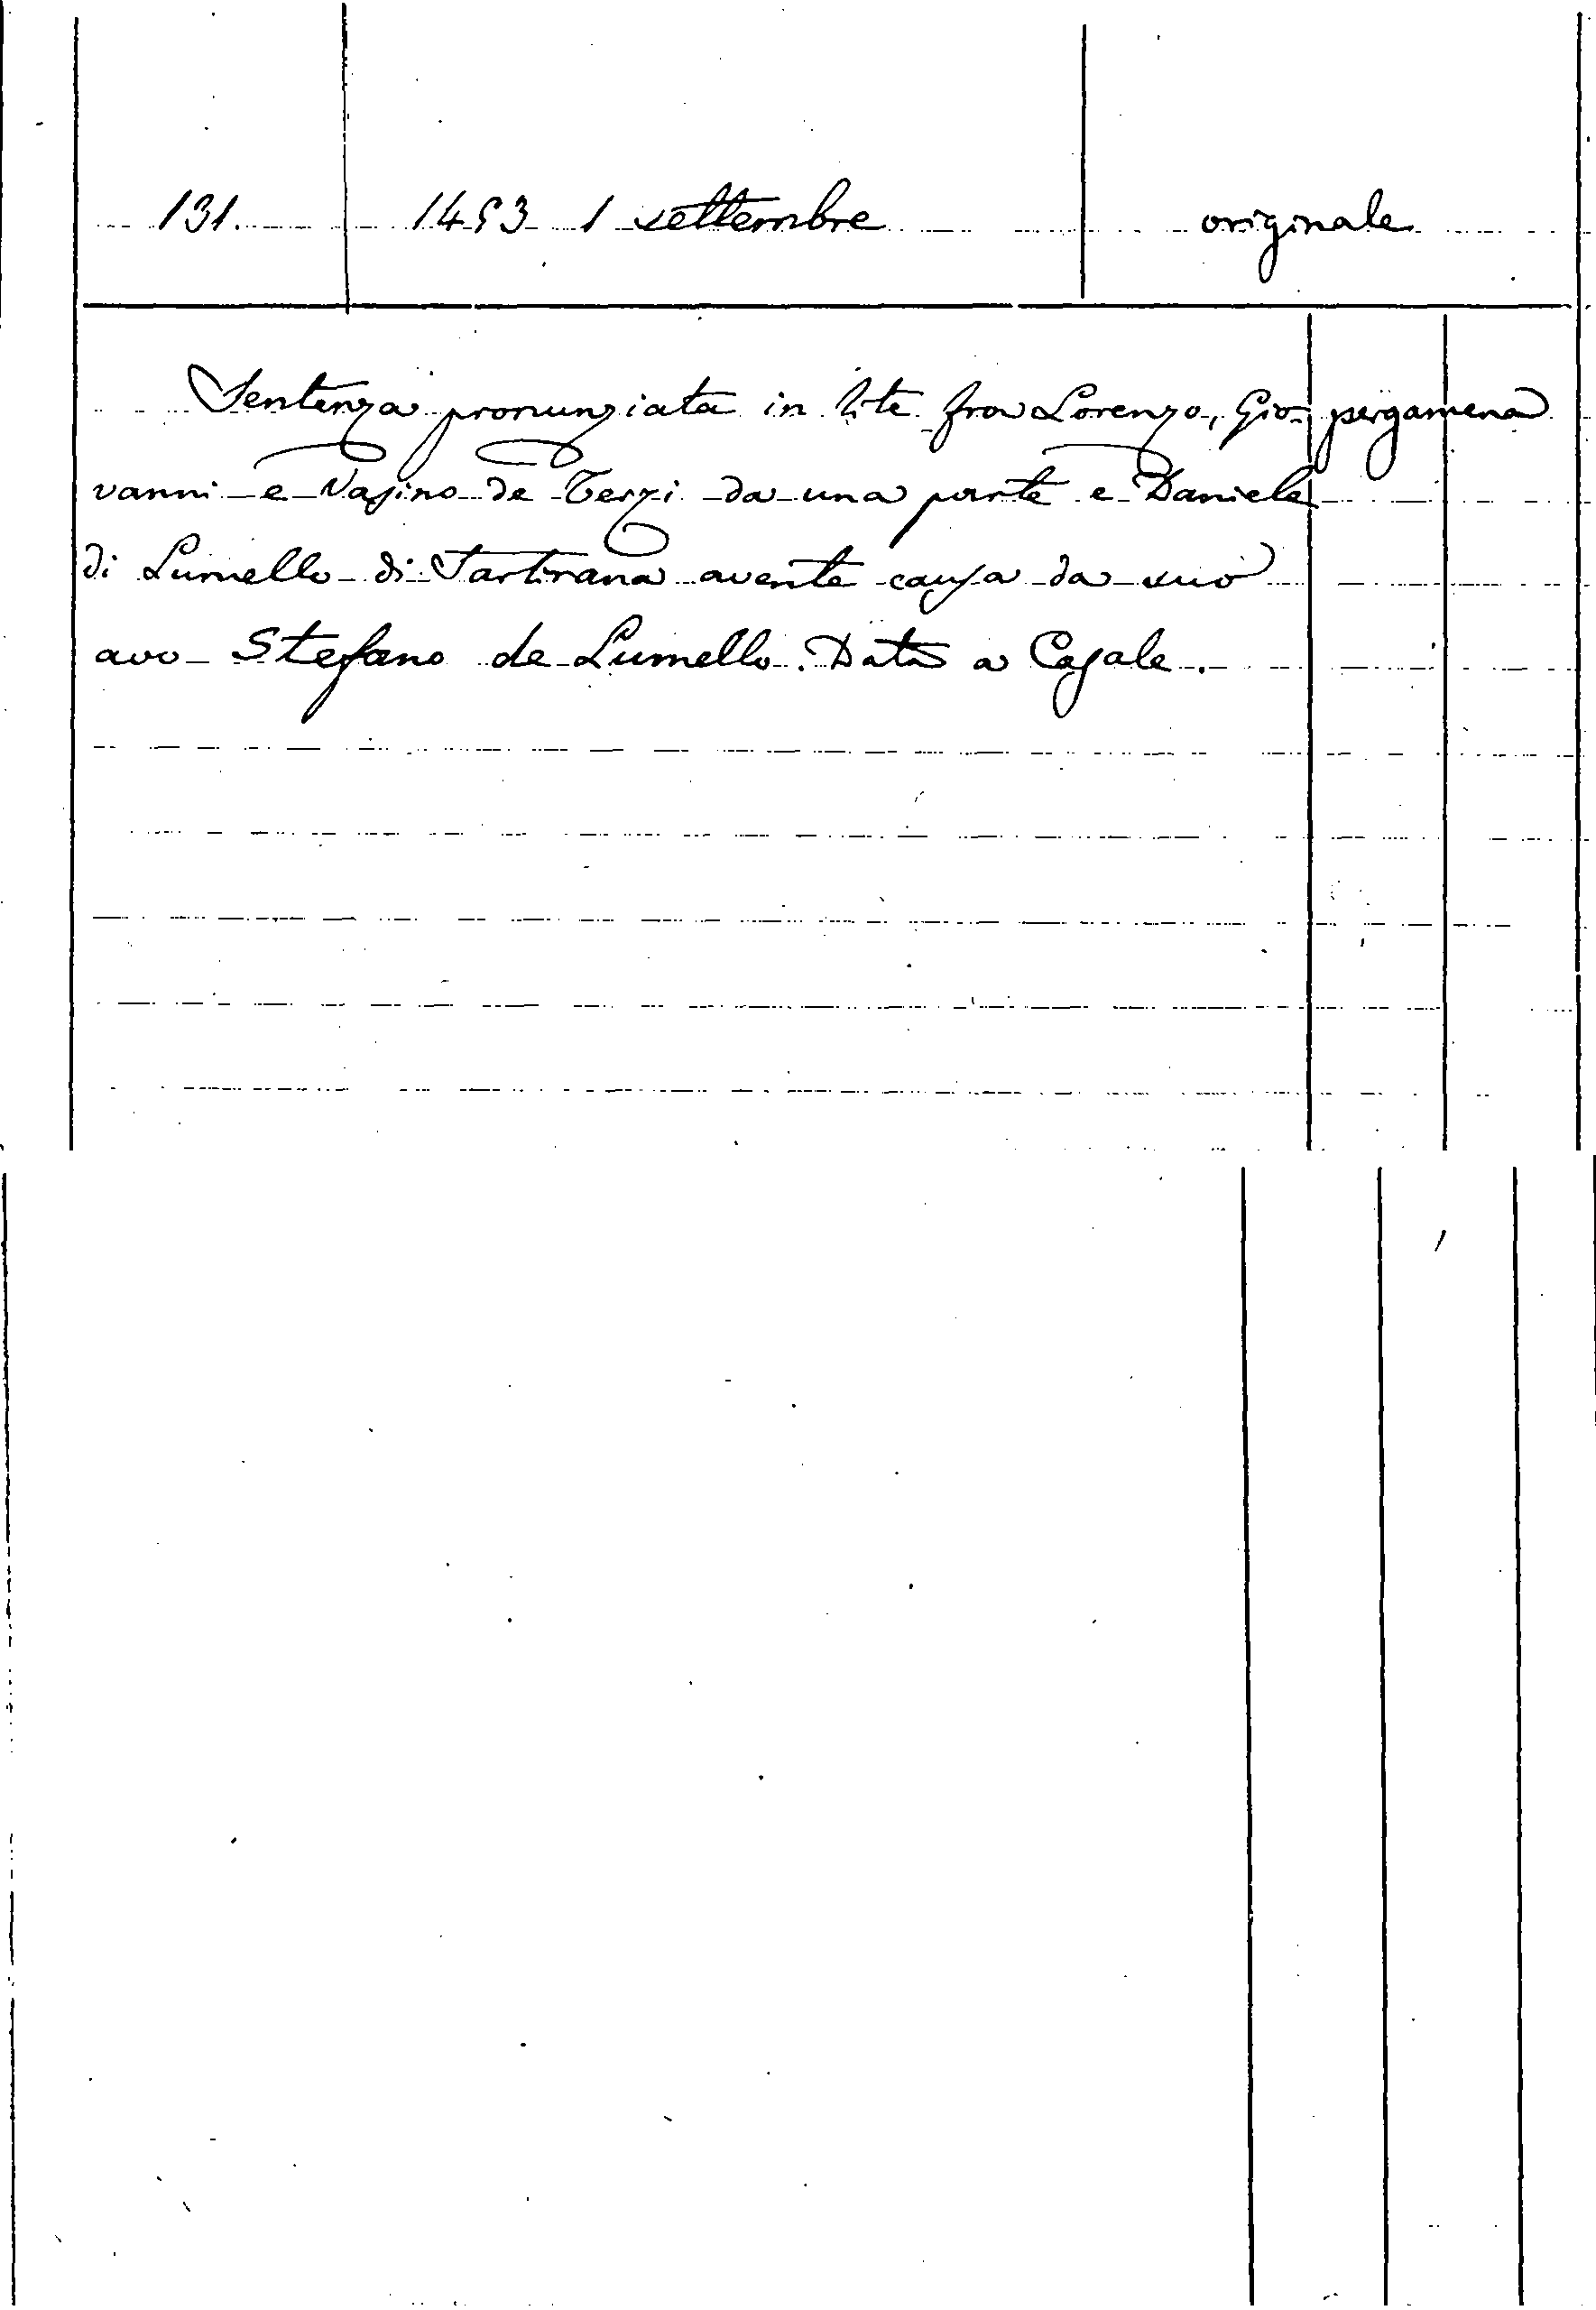 131. 1453 1 settembre originale
Sentenza pronunziata in lite fra Lorenzo, Gio- pergamena
vanni e Vasino de Terzi da una parte e Daniele
di Lumello di Sartirana avente causa da suo
avo Stefano de Lumello. Data a Casale.